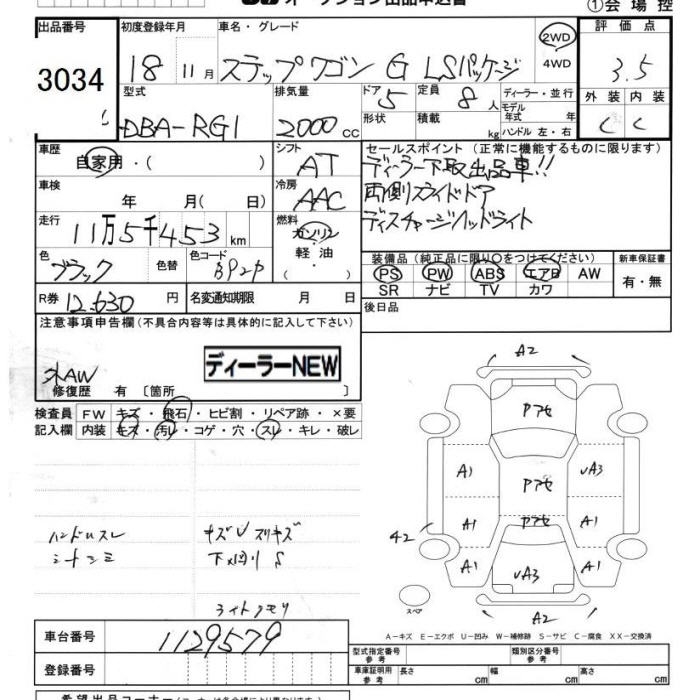 オークション出品申込書
①会場控
出品番号
3034
初度登録年月
18 11月
車名・グレード
ステップワゴン G LSパッケージ
2WD
4WD
評価点
3.5
外装 内装
C C
型式
DBA-RG1
排気量
2000cc
ドア
5
形状
定員
8人
積載
kg
ディーラー・並行
モデル年式 年
ハンドル 左・右
車歴
自家用・( )
シフト
AT
セールスポイント(正常に機能するものに限ります)
ディーラー下取出品車!!
両側スライドドア
ディスチャージヘッドライト
車検
年 月(日)
冷房
AAC
走行
11万5千453km
燃料
ガソリン
軽油
・( )
色
ブラック
色替
色コード
B92P
装備品(純正品に限り○をつけてください)
PS PW ABS エアB AW
SR ナビ TV カワ
新車保証書
有・無
R券 12,630円
名変通知期限 月 日
後日品
注意事項申告欄(不具合内容等は具体的に記入して下さい)
ディーラーNEW
社外AW
修復歴 有〔箇所 〕
検査員記入欄
FW キズ・飛石・ヒビ割・リペア跡・×要
内装 キズ・汚レ・コゲ・穴・スレ・キレ・破レ
ハンドルスレ
シートシミ
キズU スリキズ
下廻り S
ライトクモリ
A2
アアセ
A1
アアセ
UA3
A1
アアセ
A1
A2
A1
UA3
A1
A2
スペア
A-キズ E-エクボ U-凹み W-補修跡 S-サビ C-腐食 XX-交換済
車台番号
1129579
登録番号
型式指定番号
参考
類別区分番号
参考
車庫証明用
参考
長さ cm
幅 cm
高さ cm